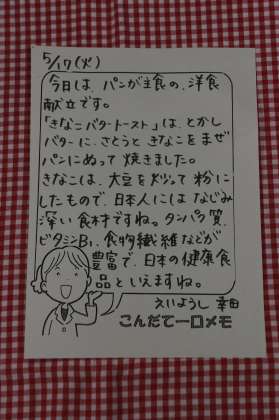 5/17(火)
今日は、パンが主食の、洋食
献立です。
「きなこバタートースト」は、とかし
バターに、さとうときなこをまぜ
パンにぬって焼きました。
きなこは、大豆を炒って粉に
したもので、日本人にはなじみ
深い食材ですね。タンパク質、
ビタミンB₁、食物繊維などが
豊富で、日本の健康食
品といえますね。
えいようし 幸田
こんだて一口メモ